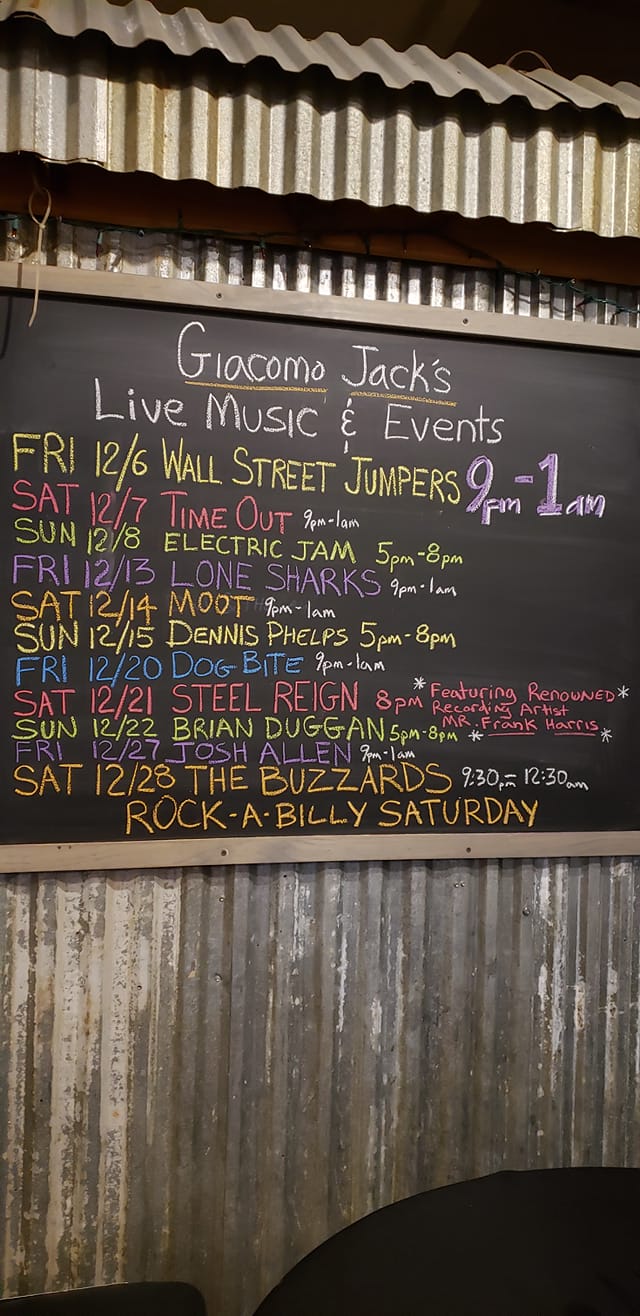 Giacomo Jack's
Live Music & Events
FRI 12/6 WALL STREET JUMPERS 9pm-1am
SAT 12/7 TIME OUT 9pm-1am
SUN 12/8 ELECTRIC JAM 5pm-8pm
FRI 12/13 LONE SHARKS 9pm-1am
SAT 12/14 MOOT 9pm-1am
SUN 12/15 DENNIS PHELPS 5pm-8pm
FRI 12/20 DOG BITE 9pm-1am
SAT 12/21 STEEL REIGN 8pm *Featuring RENOWNED*
Recording Artist
*MR. Frank Harris*
SUN 12/22 BRIAN DUGGAN 5pm-8pm
FRI 12/27 JOSH ALLEN 9pm-1am
SAT 12/28 THE BUZZARDS 9:30pm-12:30am
ROCK-A-BILLY SATURDAY